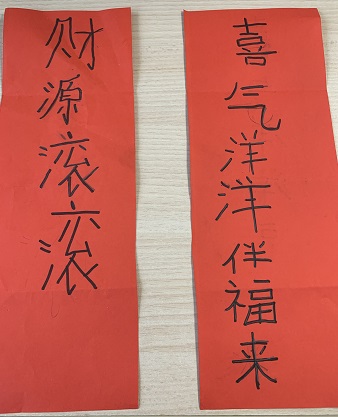 喜气洋洋伴福来
财源滚滚